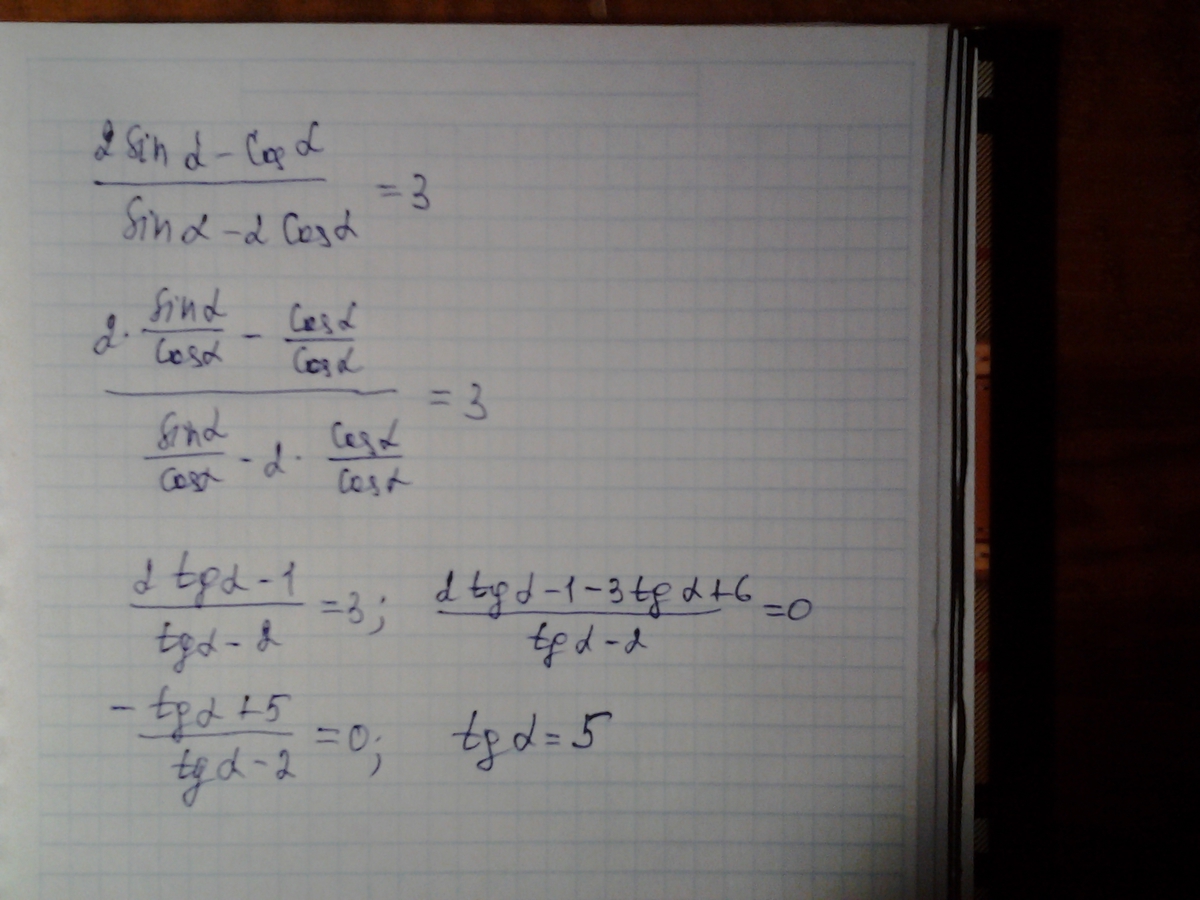 2 sin α - cos α
/ sin α - 2 cos α = 3
2 · sin α / cos α - cos α / cos α
/ sin α / cos α - 2 · cos α / cos α = 3
2 tg α - 1 / tg α - 2 = 3; 2 tg α - 1 - 3 tg α + 6 / tg α - 2 = 0
- tg α + 5 / tg α - 2 = 0; tg α = 5